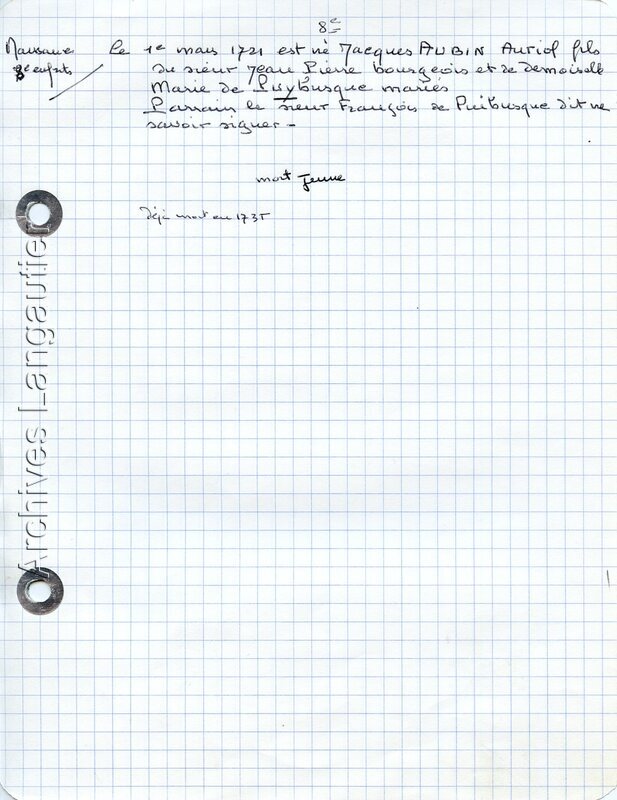 8e
Naissance Le 1e mars 1721 est né Jacques AUBIN Auriol fils
8e enfants du sieur Jean Pierre bourgeois et de demoiselle
Marie de Puybusque mariés
Parrain le sieur François de Puibusque dit ne
savoir signer -
mort jeune
déjà mort en 1735
Archives Langautier